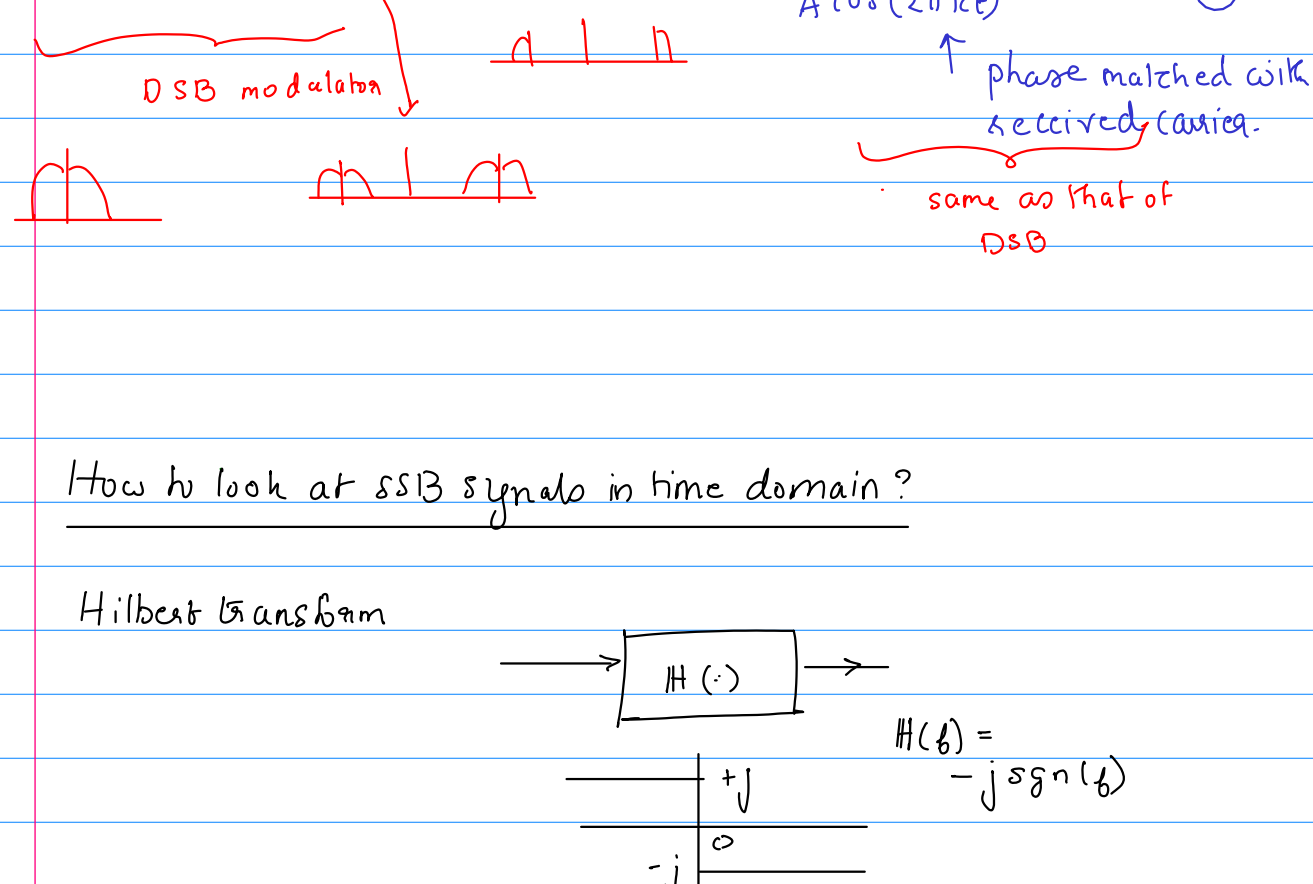 A cos(2πfct)
DSB modulator
phase matched with
received carrier.
same as that of
DSB
How to look at SSB signals in time domain?
Hilbert transform
H(·)
H(f) =
-j sgn(f)
+j
0
-j